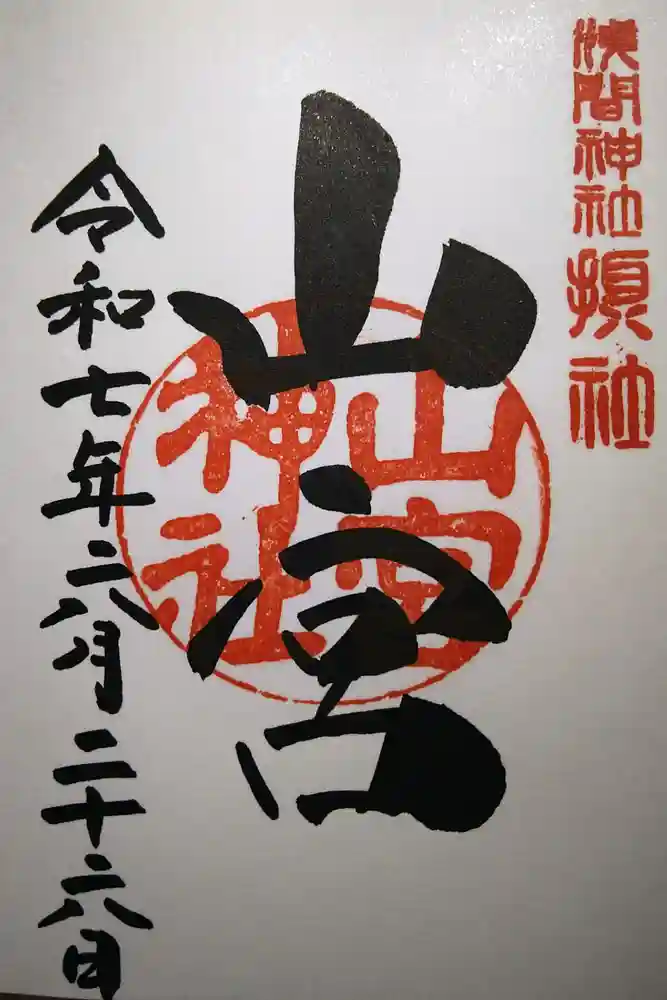 浅間神社摂社
山宮
山宮神社
令和七年六月二十六日